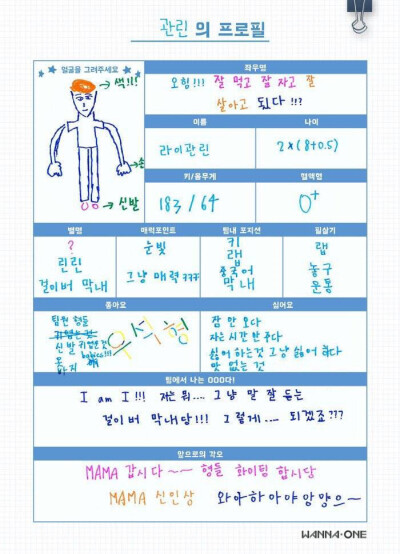 관린 의 프로필
얼굴을 그려주세요
색!!
손
신발
좌우명
오헝!!! 잘 먹고 잠 자고 잘
살아고 되다 !!?
이름
라이관린
나이
2x(8+0.5)
키/몸무게
183 / 64
혈액형
O+
별명
?
린린
걸이버 막내
매력포인트
눈빛
그냥 매력 ㅋㅋㅋ
팀내 포지션
키
랩
중국어
막내
필살기
랩
농구
운동
좋아요
팀원 형들
신발 귀여운것
옷 babies!!!
바지
우석 형
싫어요
잠 안 오다
자는 시간 안 주다
싫어 하는것 그냥 싫어 하다
맛 없는 것
팀에서 나는 OOO다!
I am I !!! 저는 뭐.... 그냥 말 잘 듣는
걸이버 막내당!!! 그렇게.... 되겠죠???
앞으로의 각오
MAMA 갑시다~~ 형들 화이팅 합시당
MAMA 신인상 와아하아야앙먕으~
WANNA·ONE